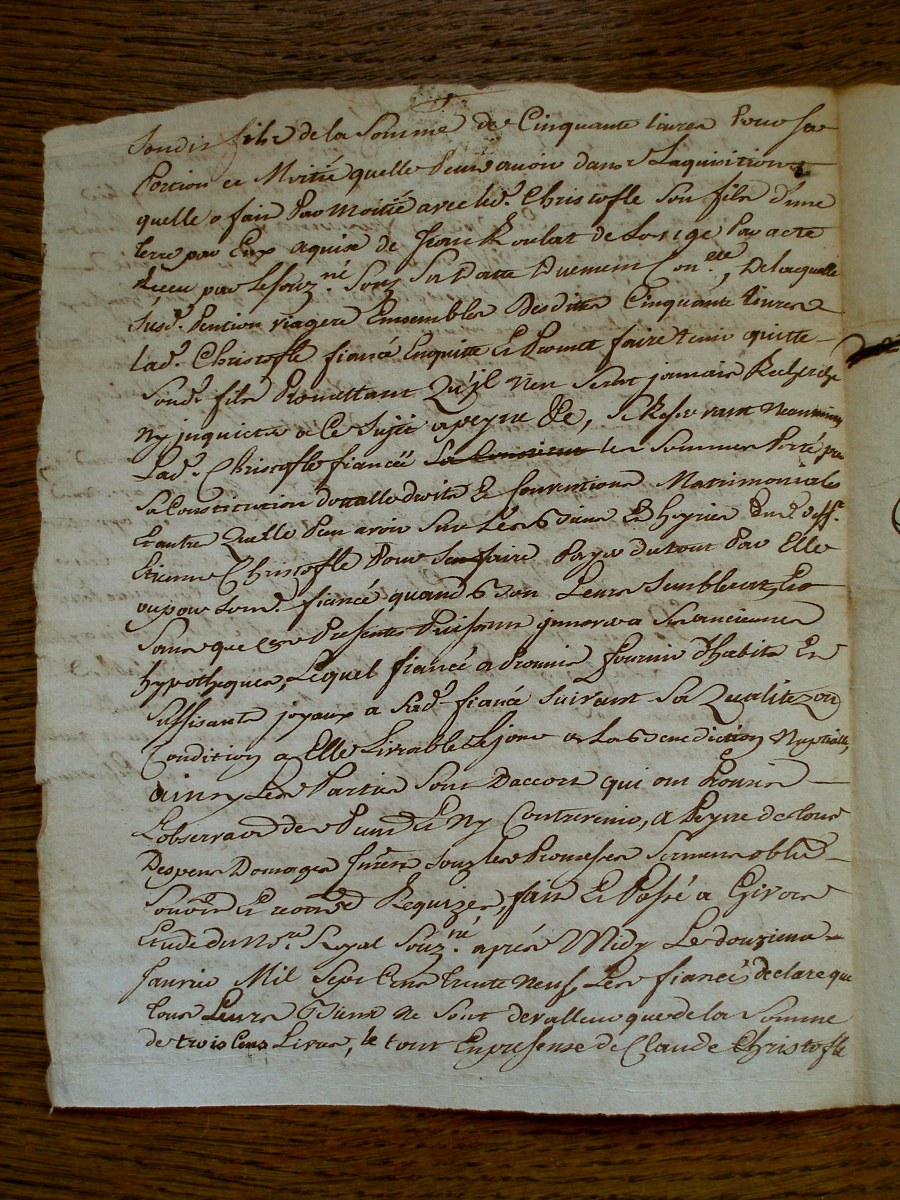 Sondit fils de la Somme de Cinquante livres Pour sa
Portion et Moitié quelle Peut avoir dans Laquisition
quelle a fait Par Moitié avec led.t Christofle Son fils d'une
terre par Eux aquise de Jean Roulat de Par acte
Receu par le souz.né Souz Sa Datte Duement Con.ellé, De laquelle
susd.e Pention viagere Ensembles Desdittes Cinquante Livres
Lad.e Christofle fiancé Enquitte Et Promet faire tenir quitte
Sond.t fils Promettant Qu'jl n'en serat jamais Recherché
Ny jnquietté a ce Sujet a peyne &c, Se Reservant Neanmoins
Lad.e Christofle fiancée les Sommes Porté par
Sa Constitution dottalle droits Et Conventions Matrimoniales
Et autre Quelle Peut avoir Sur Les Biens Et heyrie
Etienne Christofle Pour Sen faire Payer du tout Par Elle
ou par sond.t fiancé quand Bon Leurs Semblerat Et
Sans que ces Presentes Puissent jnnover a Ses anciennes
hypotheques, Lequel fiancé a Promis fournir d'habits Et
Suffisants joyaux a Sad.e fiancé suivant Sa Qualité ou
Condition a Elle Livrable Le jour de La Benediction Nuptialle
ainsy Les Parties Sont Daccort qui ont Promis
L'observer Et Ny Contrevenir, a Peyne de tous
Despens Domages jnterets souz les Promesses Serments oblig
Soum.on Et renon.on Requizes, fait Et Passé a Givors
Etude du No.re Royal Souz.né aprés Midy Le douzieme
Janvier Mil Sept Cens trente Neuf, Les fiancé declare que
tous Leurs Biens ne Sont de valleur que de la Somme
de trois Cens Livres, le tout En presense de Claude Christofle